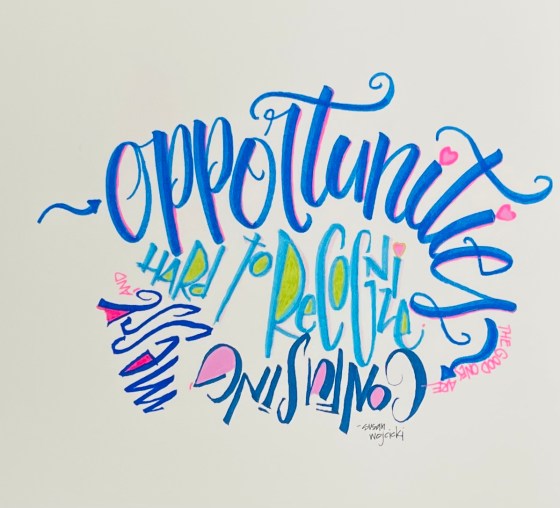 opportunities
THE GOOD ONES ARE
CONFUSING
MESSY
AND
HARD to RECOGNIZE
-susan
wojcicki